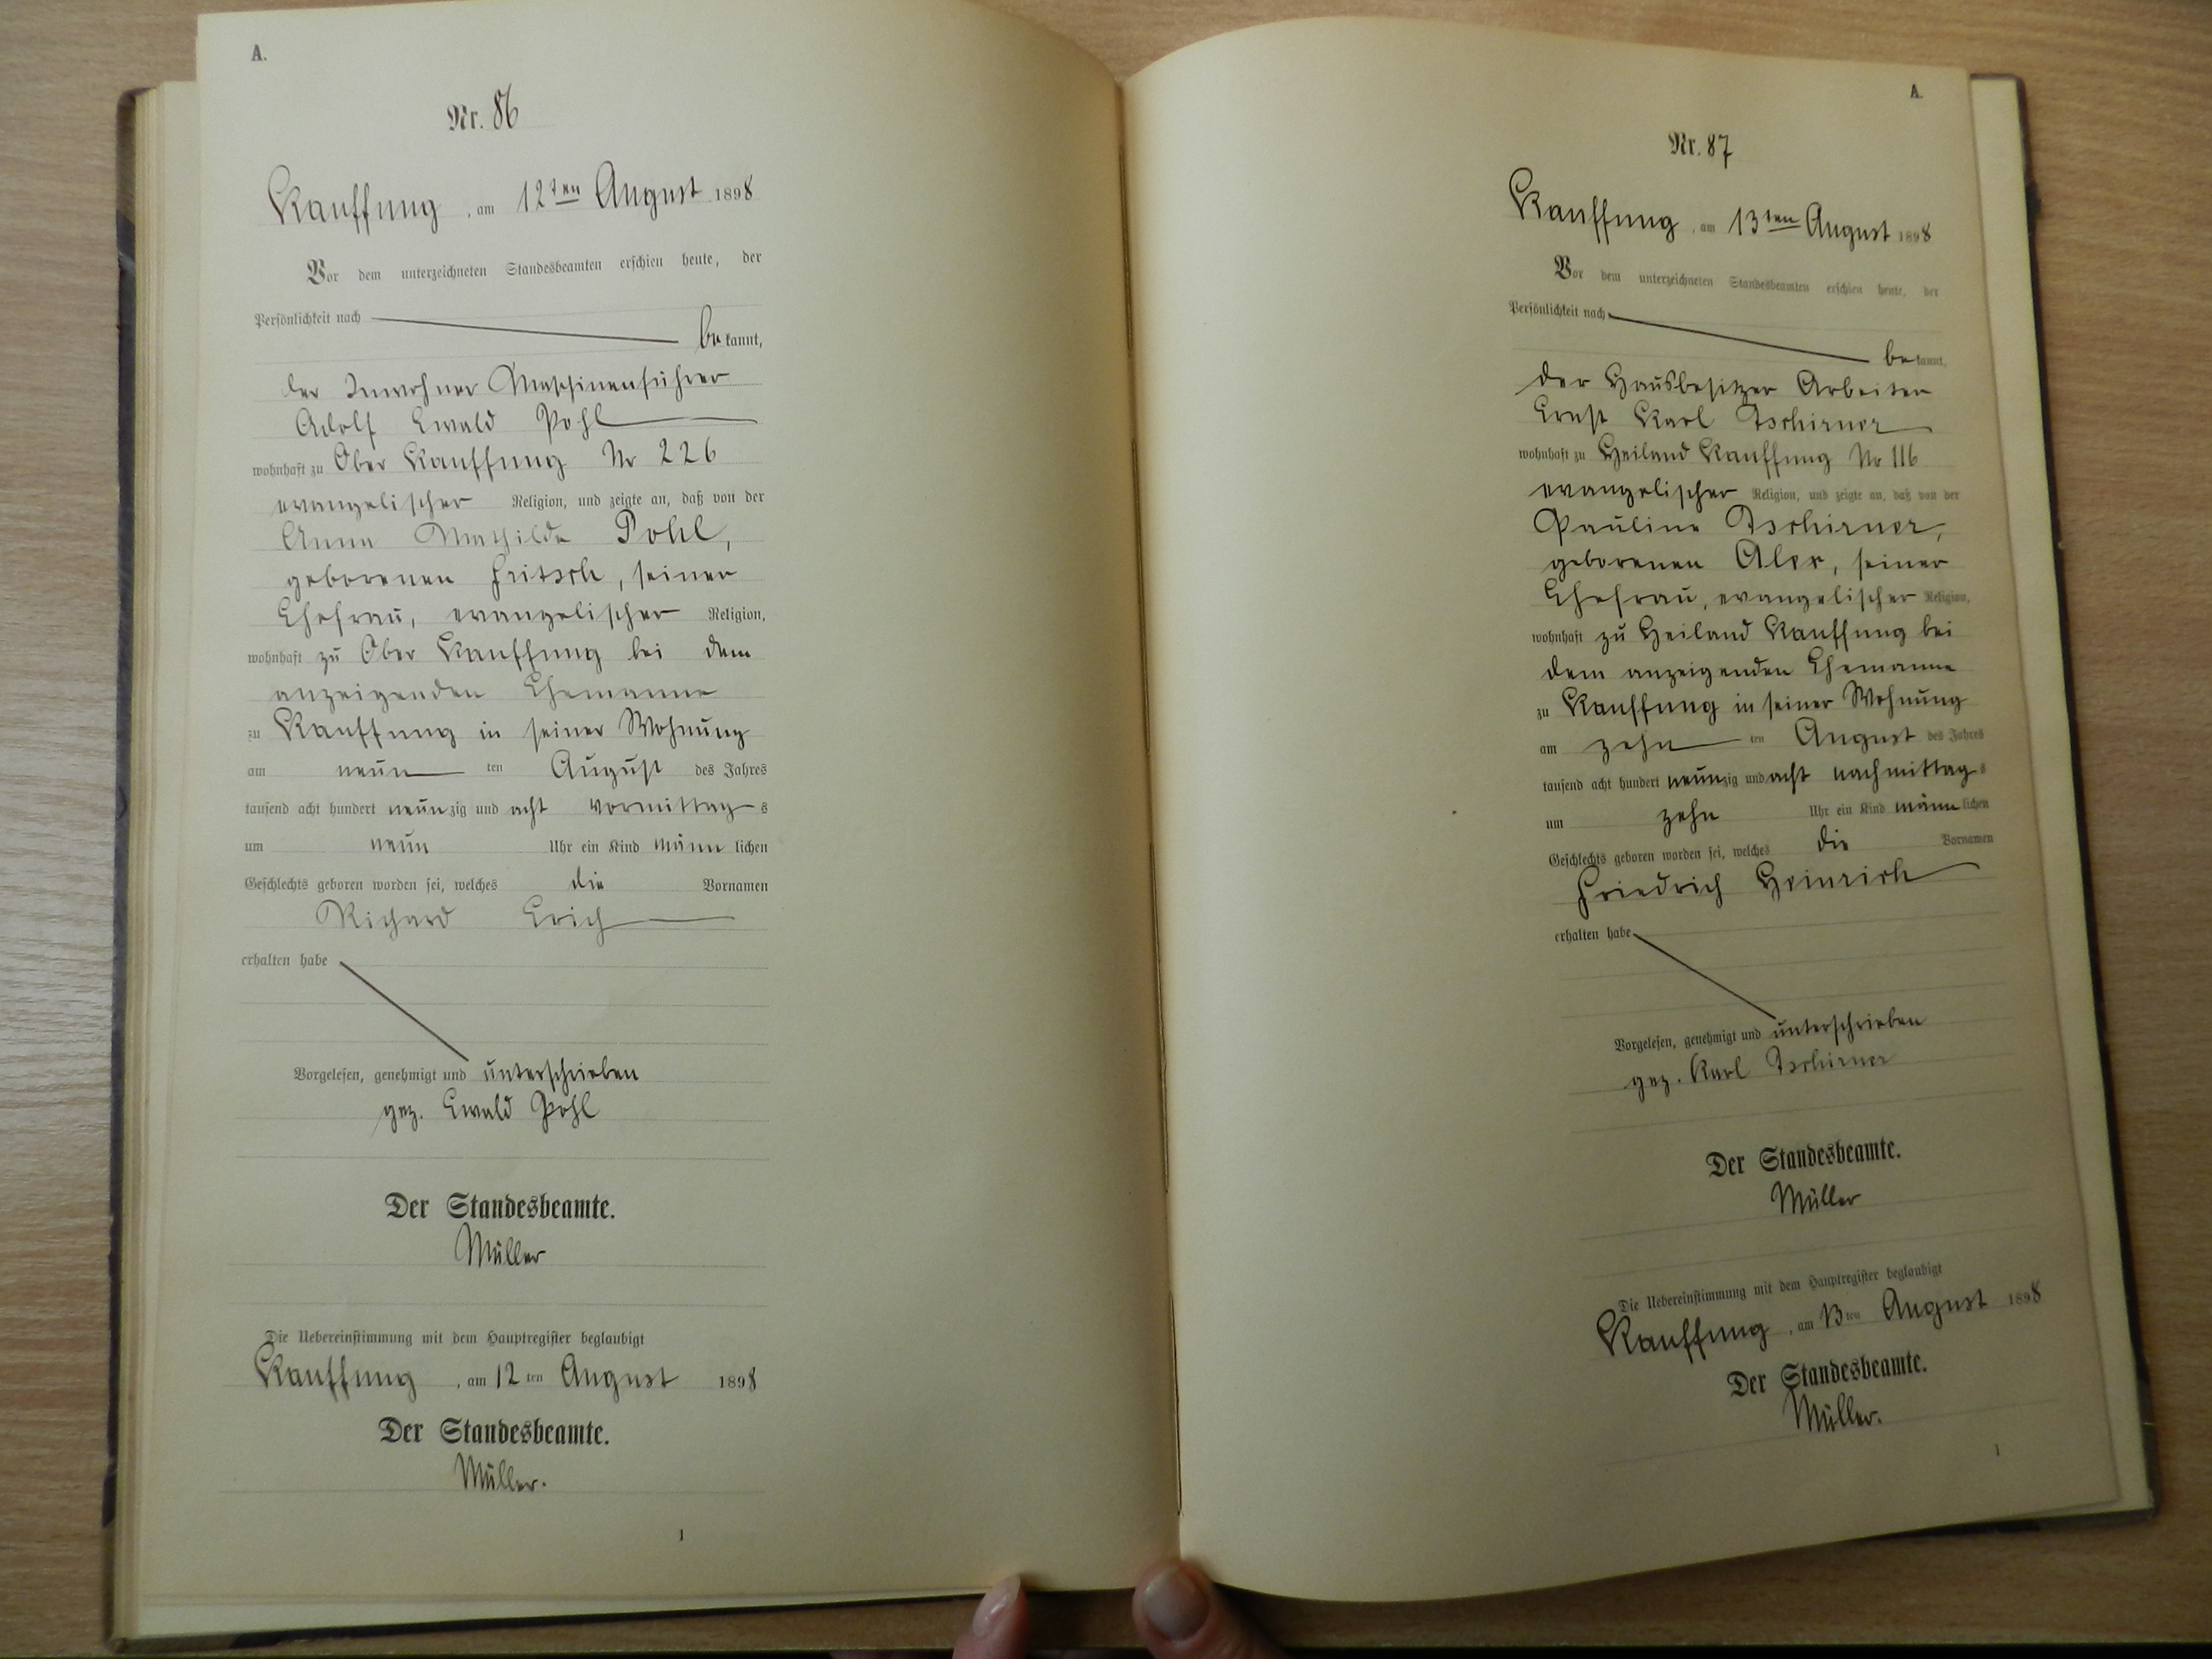 A.
Nr. 86
Kauffung, am 12ten August 1898
Vor dem unterzeichneten Standesbeamten erschien heute, der
Persönlichkeit nach
bekannt,
der Inwohner Maschinenführer
Adolf Ewald Pohl
wohnhaft zu Ober Kauffung Nr 226
evangelischer Religion, und zeigte an, daß von der
Anna Mathilde Pohl,
geborenen Fritsch, seiner
Ehefrau, evangelischer Religion,
wohnhaft zu Ober Kauffung bei dem
anzeigenden Ehemanne
zu Kauffung in seiner Wohnung
am neun ten August des Jahres
tausend acht hundert neunzig und acht Vormittags
um neun Uhr ein Kind männlichen
Geschlechts geboren worden sei, welches die Vornamen
Richard Erich
erhalten habe
Vorgelesen, genehmigt und unterschrieben
gez. Ewald Pohl
Der Standesbeamte.
Müller
Die Uebereinstimmung mit dem Hauptregister beglaubigt
Kauffung, am 12ten August 1898
Der Standesbeamte.
Müller.
1
A.
Nr. 87
Kauffung, am 13ten August 1898
Vor dem unterzeichneten Standesbeamten erschien heute, der
Persönlichkeit nach
bekannt,
der Hausbesitzer Arbeiter
Ernst Karl Tschirner
wohnhaft zu Heiland Kauffung Nr 116
evangelischer Religion, und zeigte an, daß von der
Pauline Tschirner,
geborenen seiner
Ehefrau, evangelischer Religion,
wohnhaft zu Heiland Kauffung bei
dem anzeigenden Ehemanne
zu Kauffung in seiner Wohnung
am zehn ten August des Jahres
tausend acht hundert neunzig und acht nachmittags
um zehn Uhr ein Kind männlichen
Geschlechts geboren worden sei, welches die Vornamen
Friedrich Heinrich
erhalten habe
Vorgelesen, genehmigt und unterschrieben
gez. Karl Tschirner
Der Standesbeamte.
Müller
Die Uebereinstimmung mit dem Hauptregister beglaubigt
Kauffung, am 13ten August 1898
Der Standesbeamte.
Müller.
1